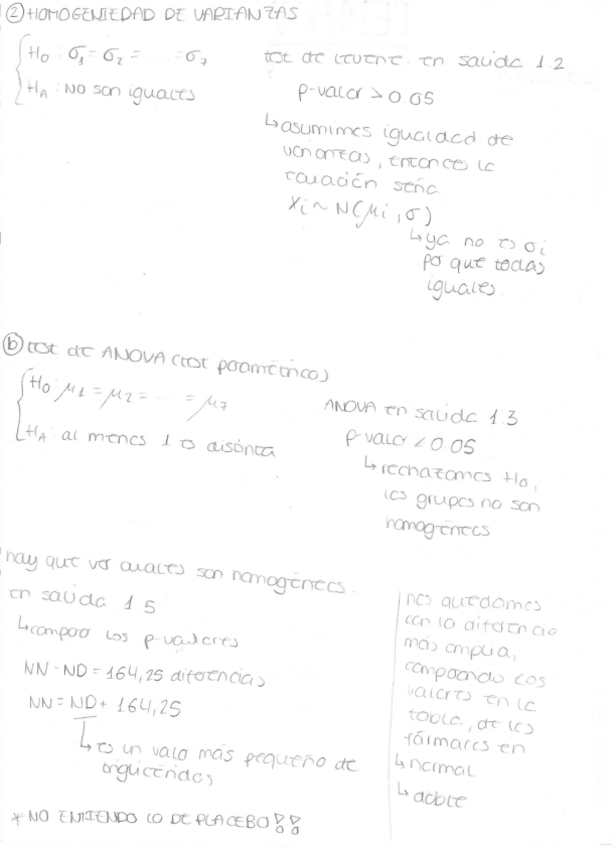 ② HOMOGENIEDAD DE VARIANZAS
H₀ : σ₁ = σ₂ = ..... = σ₇
HA : NO son iguales
test de levene en salida 1.2
p-valor > 0.05
↳ asumimos igualdad de
varianzas, entonces la
ecuación sería
Xi ~ N(μi, σ)
↳ ya no es σi
por que todas
iguales
ⓑ test de ANOVA (test paramétrico)
H₀ μ₁ = μ₂ = ... = μ₇
HA al menos 1 es distinta
ANOVA en salida 1.3
p-valor < 0.05
↳ rechazamos H₀,
los grupos no son
homogéneos
hay que ver cuales son homogéneos.
en salida 1 5
↳ comparo los p-valores
NN - ND = 164,25 diferencias
NN = ND + 164,25
↳ es un valor más pequeño de
trigliceridos
* NO ENTIENDO LO DE PLACEBO!!
nos quedamos
con la diferencia
más amplia,
comparando los
valores en la
tabla, de los
fármacos en
↳ normal
↳ doble